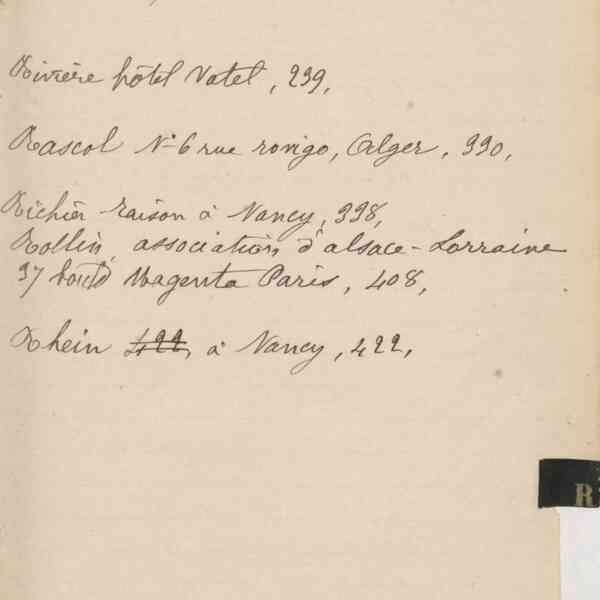 Rivière hôtel Vatel, 239,
Rascol N° 6 rue rovigo, Alger, 390,
Richier raison à Nancy, 398,
Rollin, association d'alsace-Lorraine
37 boul'd Magenta Paris, 408,
Rhein 422, à Nancy, 422,
R